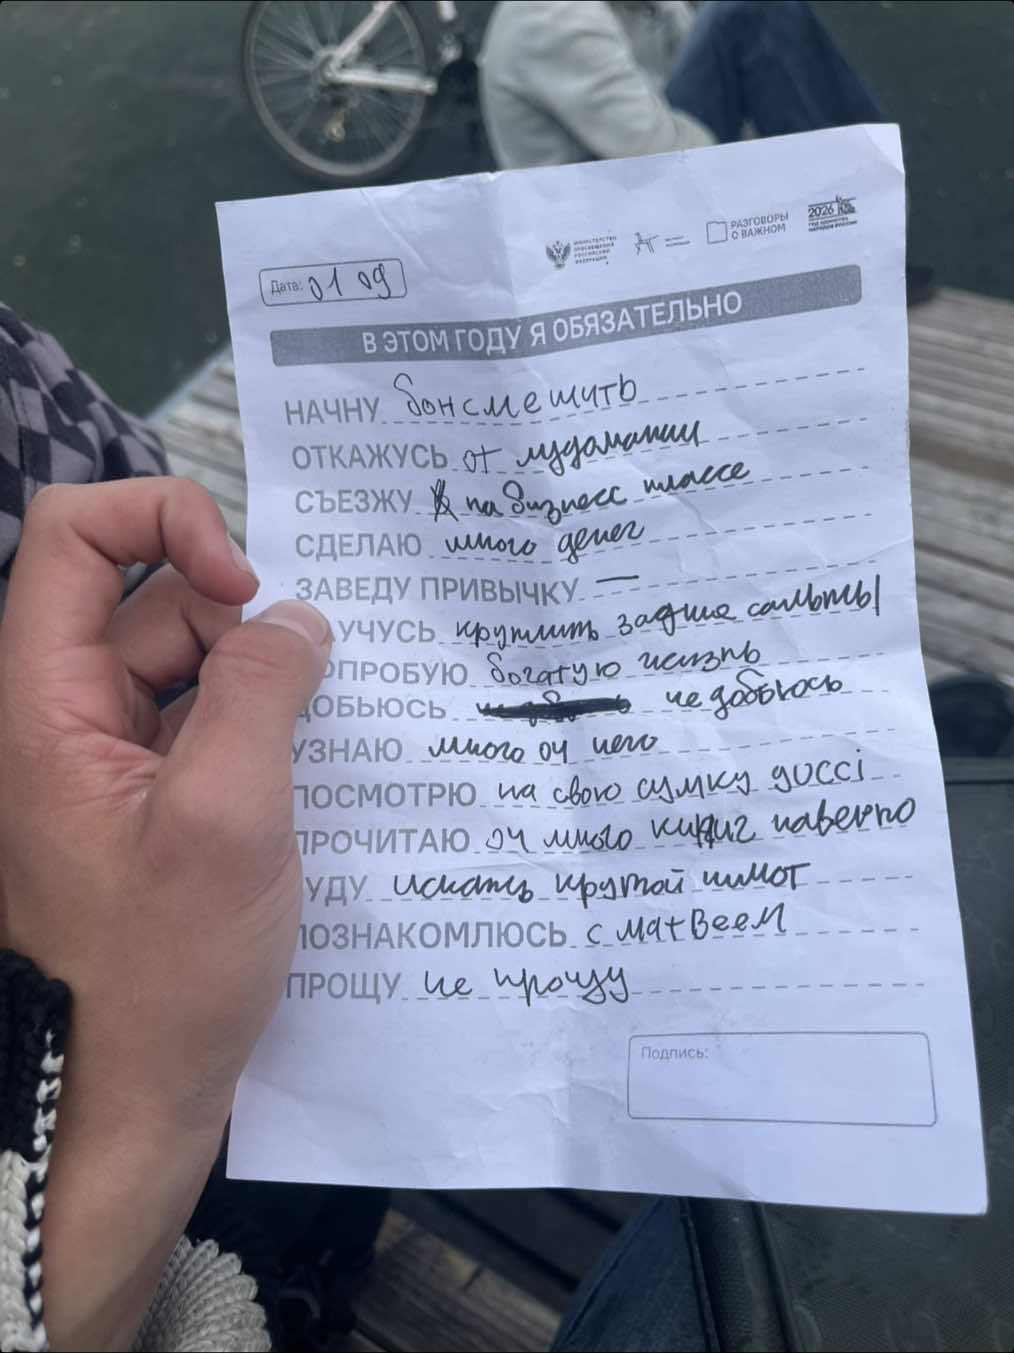 МИНИСТЕРСТВО
ПРОСВЕЩЕНИЯ
РОССИЙСКОЙ
ФЕДЕРАЦИИ
РАЗГОВОРЫ
О ВАЖНОМ
2026
ГОД ЕДИНСТВА
НАРОДОВ РОССИИ
Дата: 01 09
В ЭТОМ ГОДУ Я ОБЯЗАТЕЛЬНО
НАЧНУ бонсмешить
ОТКАЖУСЬ от лудомании
СЪЕЗЖУ на бизнесс классе
СДЕЛАЮ много денег
ЗАВЕДУ ПРИВЫЧКУ —
УЧУСЬ крутить задние сальты
ОПРОБУЮ богатую жизнь
ДОБЬЮСЬ не добьюсь
УЗНАЮ много оч чего
ПОСМОТРЮ на свою сумку gucci
ПРОЧИТАЮ оч много книг наверно
УДУ искать крутой шмот
ПОЗНАКОМЛЮСЬ с матвеем
ПРОЩУ не прощу
Подпись: